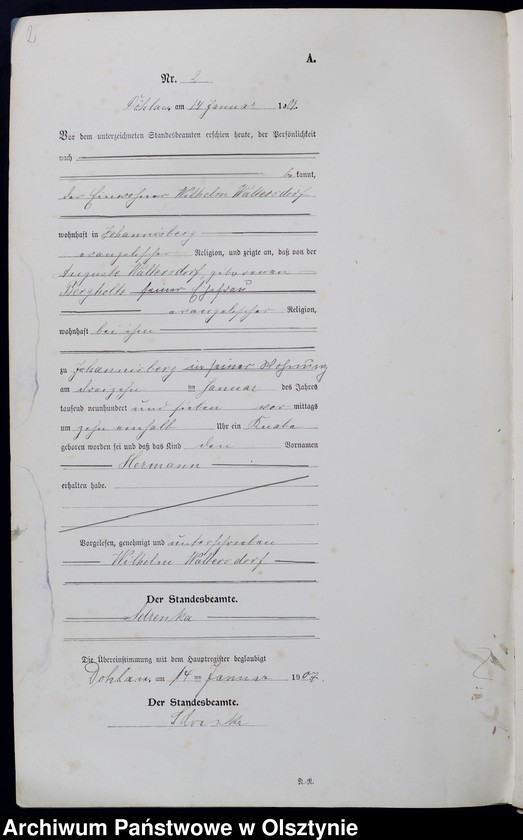 2
A.
Nr. 2
Döhlau, am 14 Januar 1907.
Vor dem unterzeichneten Standesbeamten erschien heute, der Persönlichkeit
nach
bekannt,
der Einwohner Wilhelm Waltersdorf
wohnhaft in Johannisberg
evangelischer Religion, und zeigte an, daß von der
Auguste Waltersdorf, geborenen
Bergholts seiner Ehefrau
evangelischer Religion,
wohnhaft bei ihm
zu Johannisberg in seiner Wohnung
am dreizehn ten Januar des Jahres
tausend neunhundert und sieben vor mittags
um zehn einhalb Uhr ein Knabe
geboren worden sei und daß das Kind den Vornamen
Hermann
erhalten habe.
Vorgelesen, genehmigt und unterschrieben
Wilhelm Waltersdorf
Der Standesbeamte.
Die Übereinstimmung mit dem Hauptregister beglaubigt
Döhlau, am 14 ten Januar 1907.
Der Standesbeamte.
Archiwum Państwowe w Olsztynie